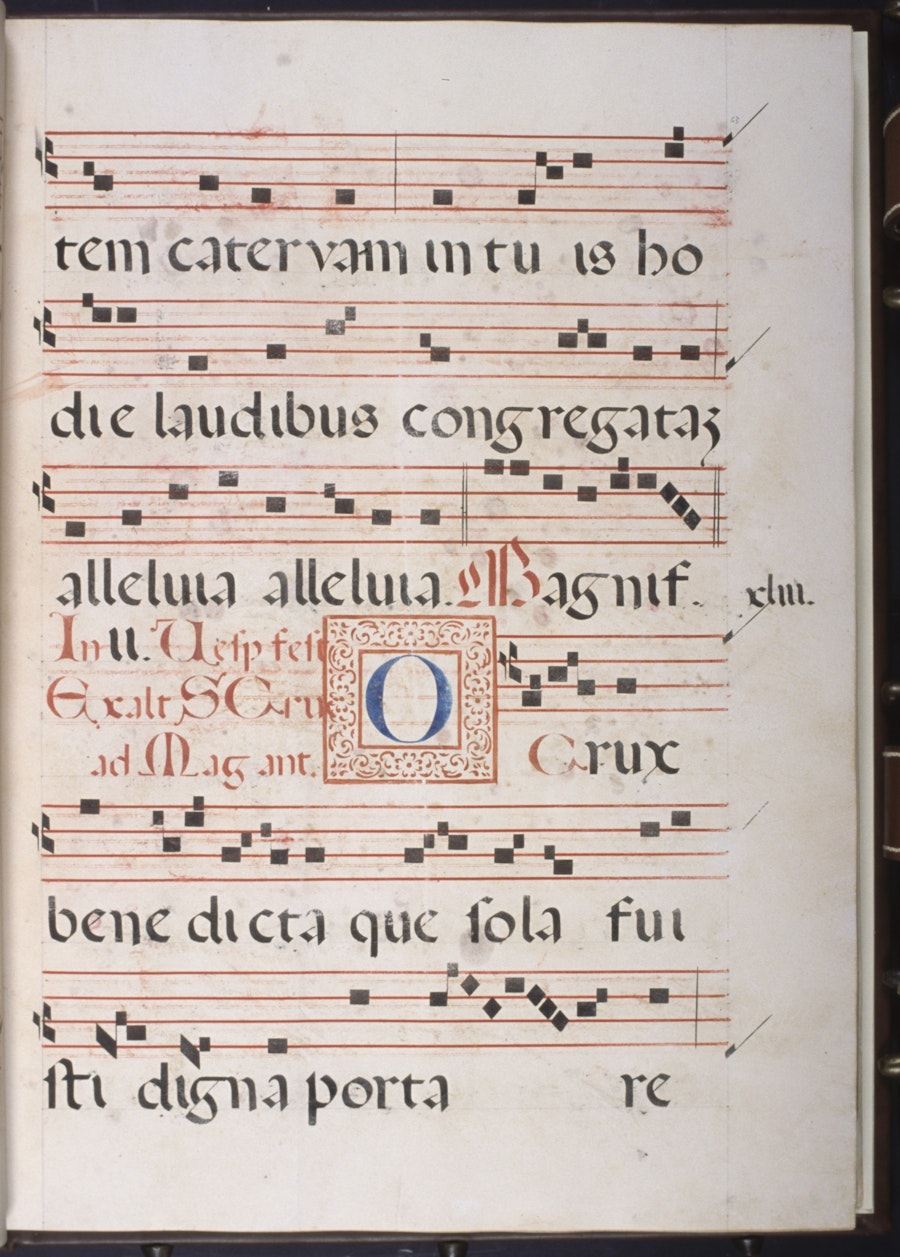 tem catervam in tu is ho
die laudibus congregataꝫ
alleluia alleluia. Magnif. xliii.
In II. Vesp fest
Exalt S Crucis
ad Mag ant.
O Crux
bene dicta que sola fui
sti digna porta re